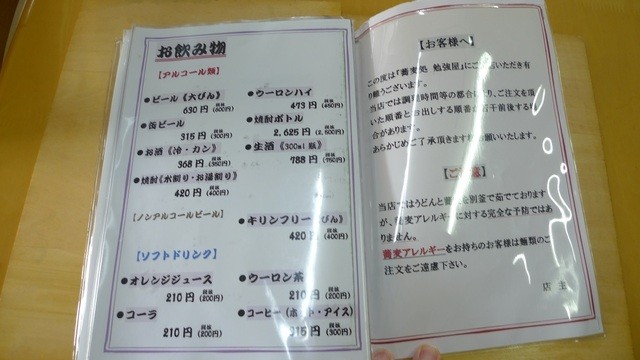 お飲み物
【アルコール類】
●ビール《大びん》
630円 税抜(600円)
●缶ビール
315円 税抜(300円)
●お酒《冷・カン》
368円 税抜(350円)
●焼酎《水割り・お湯割り》
420円 税抜(400円)
●ウーロンハイ
473円 税抜(450円)
●焼酎ボトル
2,625円 税抜(2,500円)
●生酒《300ml瓶》
788円 税抜(750円)
【ノンアルコールビール】
●キリンフリー《びん》
420円 税抜(400円)
【ソフトドリンク】
●オレンジジュース
210円 税抜(200円)
●コーラ
210円 税抜(200円)
●ウーロン茶
210円 税抜(200円)
●コーヒー(ホット・アイス)
315円 税抜(300円)
【お客様へ】
この度は「蕎麦処 勉強屋」にご来店いただき有
り難うございます。
当店では調理時間等の都合により、ご注文を頂
いた順番とお出しする順番が若干前後する場
合があります。
あらかじめご了承頂きます様お願いいたします。
【ご注意】
当店ではうどんと蕎麦を別釜で茹でております
が、蕎麦アレルギーに対する完全な予防ではあ
りません。
蕎麦アレルギーをお持ちのお客様は麺類のご
注文をご遠慮下さい。
店 主